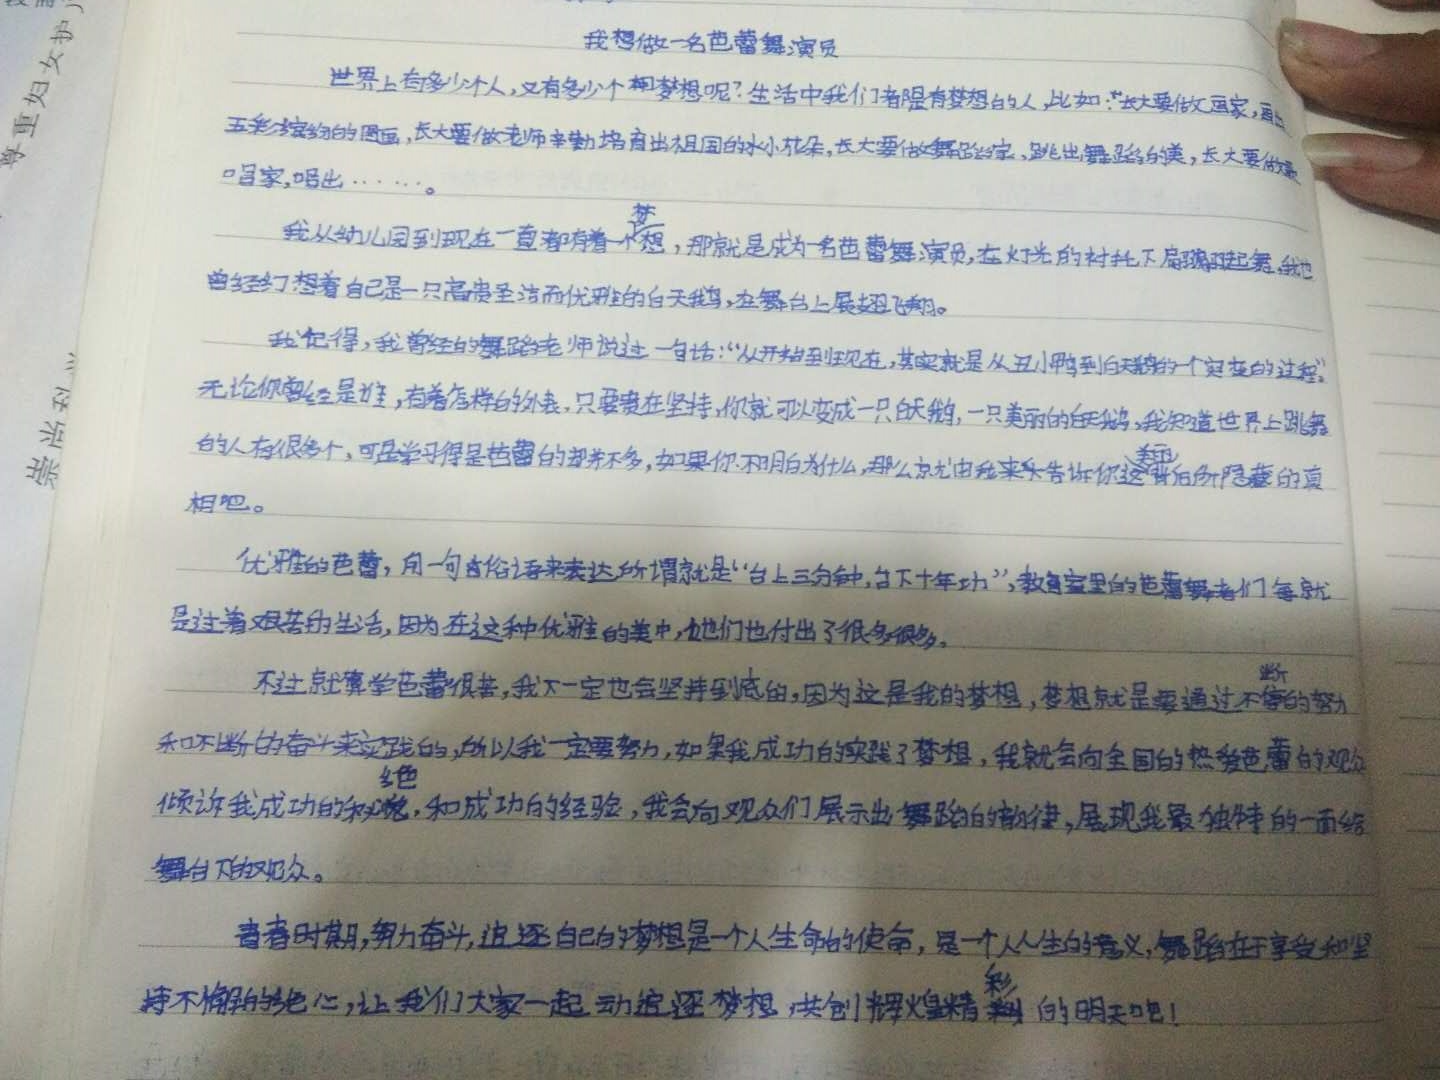 我想做一名芭蕾舞演员
世界上有多少个人,又有多少个梦想呢?生活中我们都是有梦想的人,比如:"长大要做画家,画出
五彩缤纷的图画,长大要做老师辛勤培育出祖国的小花朵,长大要做舞蹈家,跳出舞蹈的美,长大要做歌
唱家,唱出……。
我从幼儿园到现在一直都有着一个梦想,那就是成为一名芭蕾舞演员,在灯光的衬托下扁翩起舞,我也
曾经幻想着自己是一只高贵圣洁而优雅的白天鹅,在舞台上展翅飞翔。
我记得,我曾经的舞蹈老师说过一句话:"从开始到现在,其实就是从丑小鸭到白天鹅的一个突变的过程",
无论你曾经是谁,有着怎样的外表,只要贵在坚持,你就可以变成一只白天鹅,一只美丽的白天鹅,我知道世界上跳舞
的人有很多个,可是学习得是芭蕾的却并不多,如果你不明白为什么,那么就由我来告诉你这美丽背后所隐藏的真
相吧。
优雅的芭蕾,用一句俗语来表达所谓就是"台上三分钟,台下十年功",教室里的芭蕾舞者们每就
是过着艰苦的生活,因为在这种优雅的美中,她们也付出了很多很多。
不过就算学芭蕾很苦,我不一定也会坚持到底的,因为这是我的梦想,梦想就是要通过不断的努力
和不断的奋斗来实践的,所以我一定要努力,如果我成功的实践了梦想,我就会向全国的热爱芭蕾的观众
倾诉我成功的秘绝,和成功的经验,我会向观众们展示出舞蹈的韵律,展现我最独特的一面给
舞台下的观众。
青春时期,努力奋斗,追逐自己的梦想是一个人生命的使命,是一个人人生的意义,舞蹈在于享受和坚
持不懈的绝心,让我们大家一起动追逐梦想,共创辉煌精彩的明天吧!
尊重妇女护
崇尚科